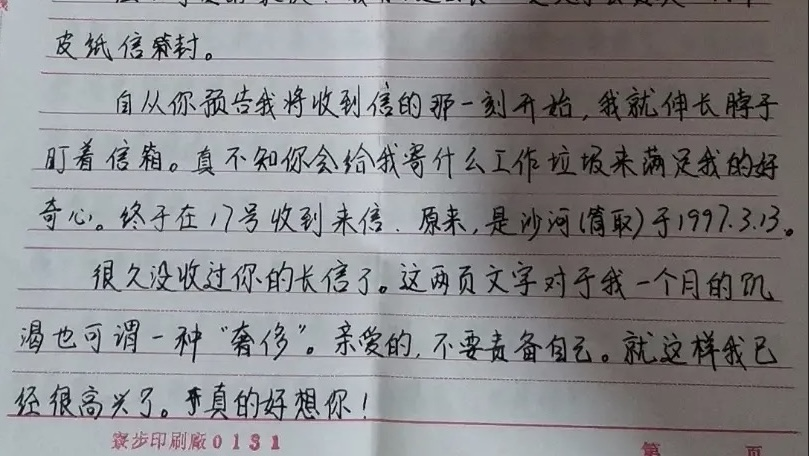 皮纸信封。
自从你预告我将收到信的那一刻开始，我就伸长脖子
盯着信箱。真不知你会给我寄什么工作垃圾来满足我的好
奇心。终于在17号收到来信. 原来,是沙河(筒取)于1997.3.13。
很久没收过你的长信了。这两页文字对于我一个月的饥
渴也可谓一种“奢侈”。亲爱的,不要责备自己。就这样我已
经很高兴了。真的好想你！
寮步印刷廠0131
第 页